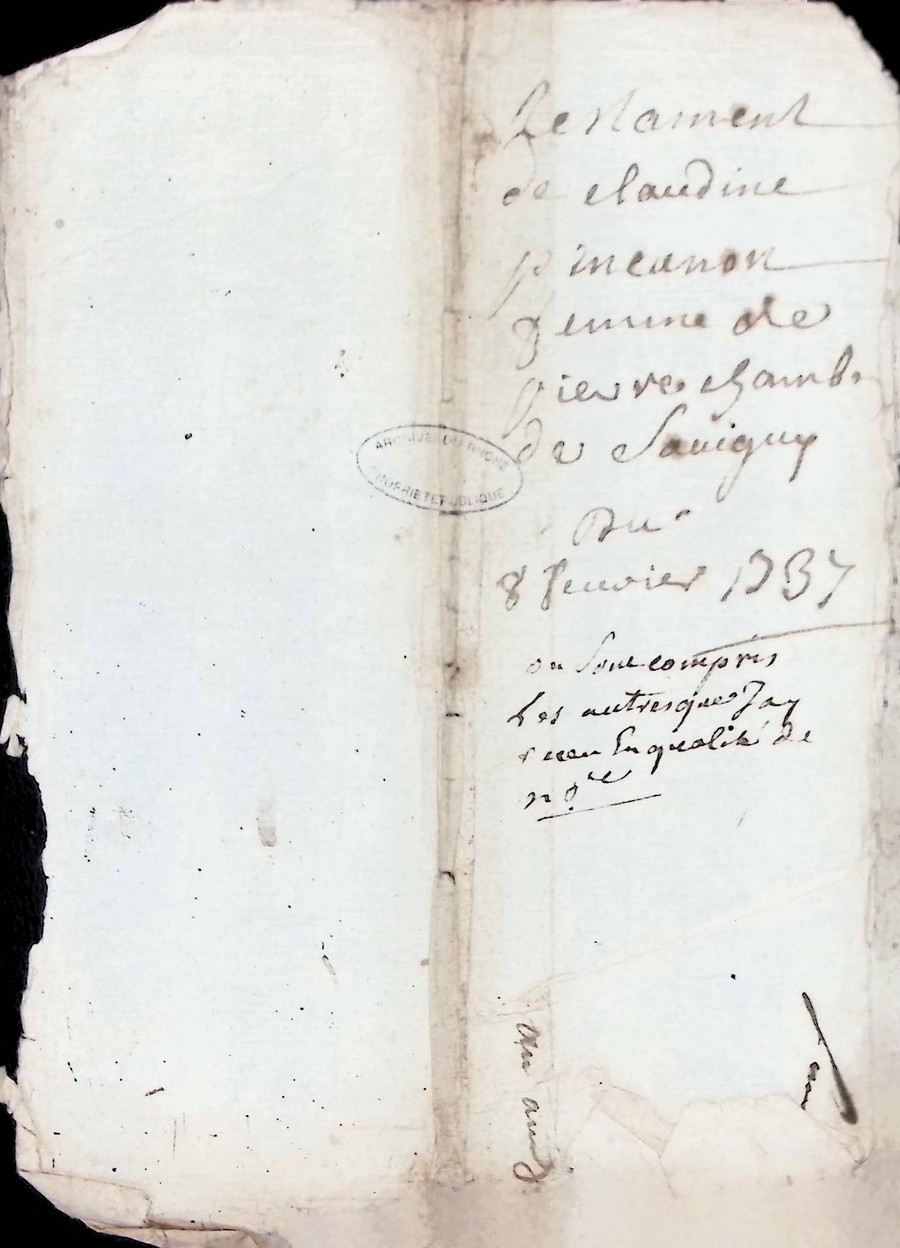 Testament
de claudine
pincanon
femme de
pierre chamb.
de Savigny
Du
8 feuvier 1737
ou sont compris
Les autres que Jay
receu En qualité de
nore
ARCHIVES DU RHONE
PROPRIETE PUBLIQUE